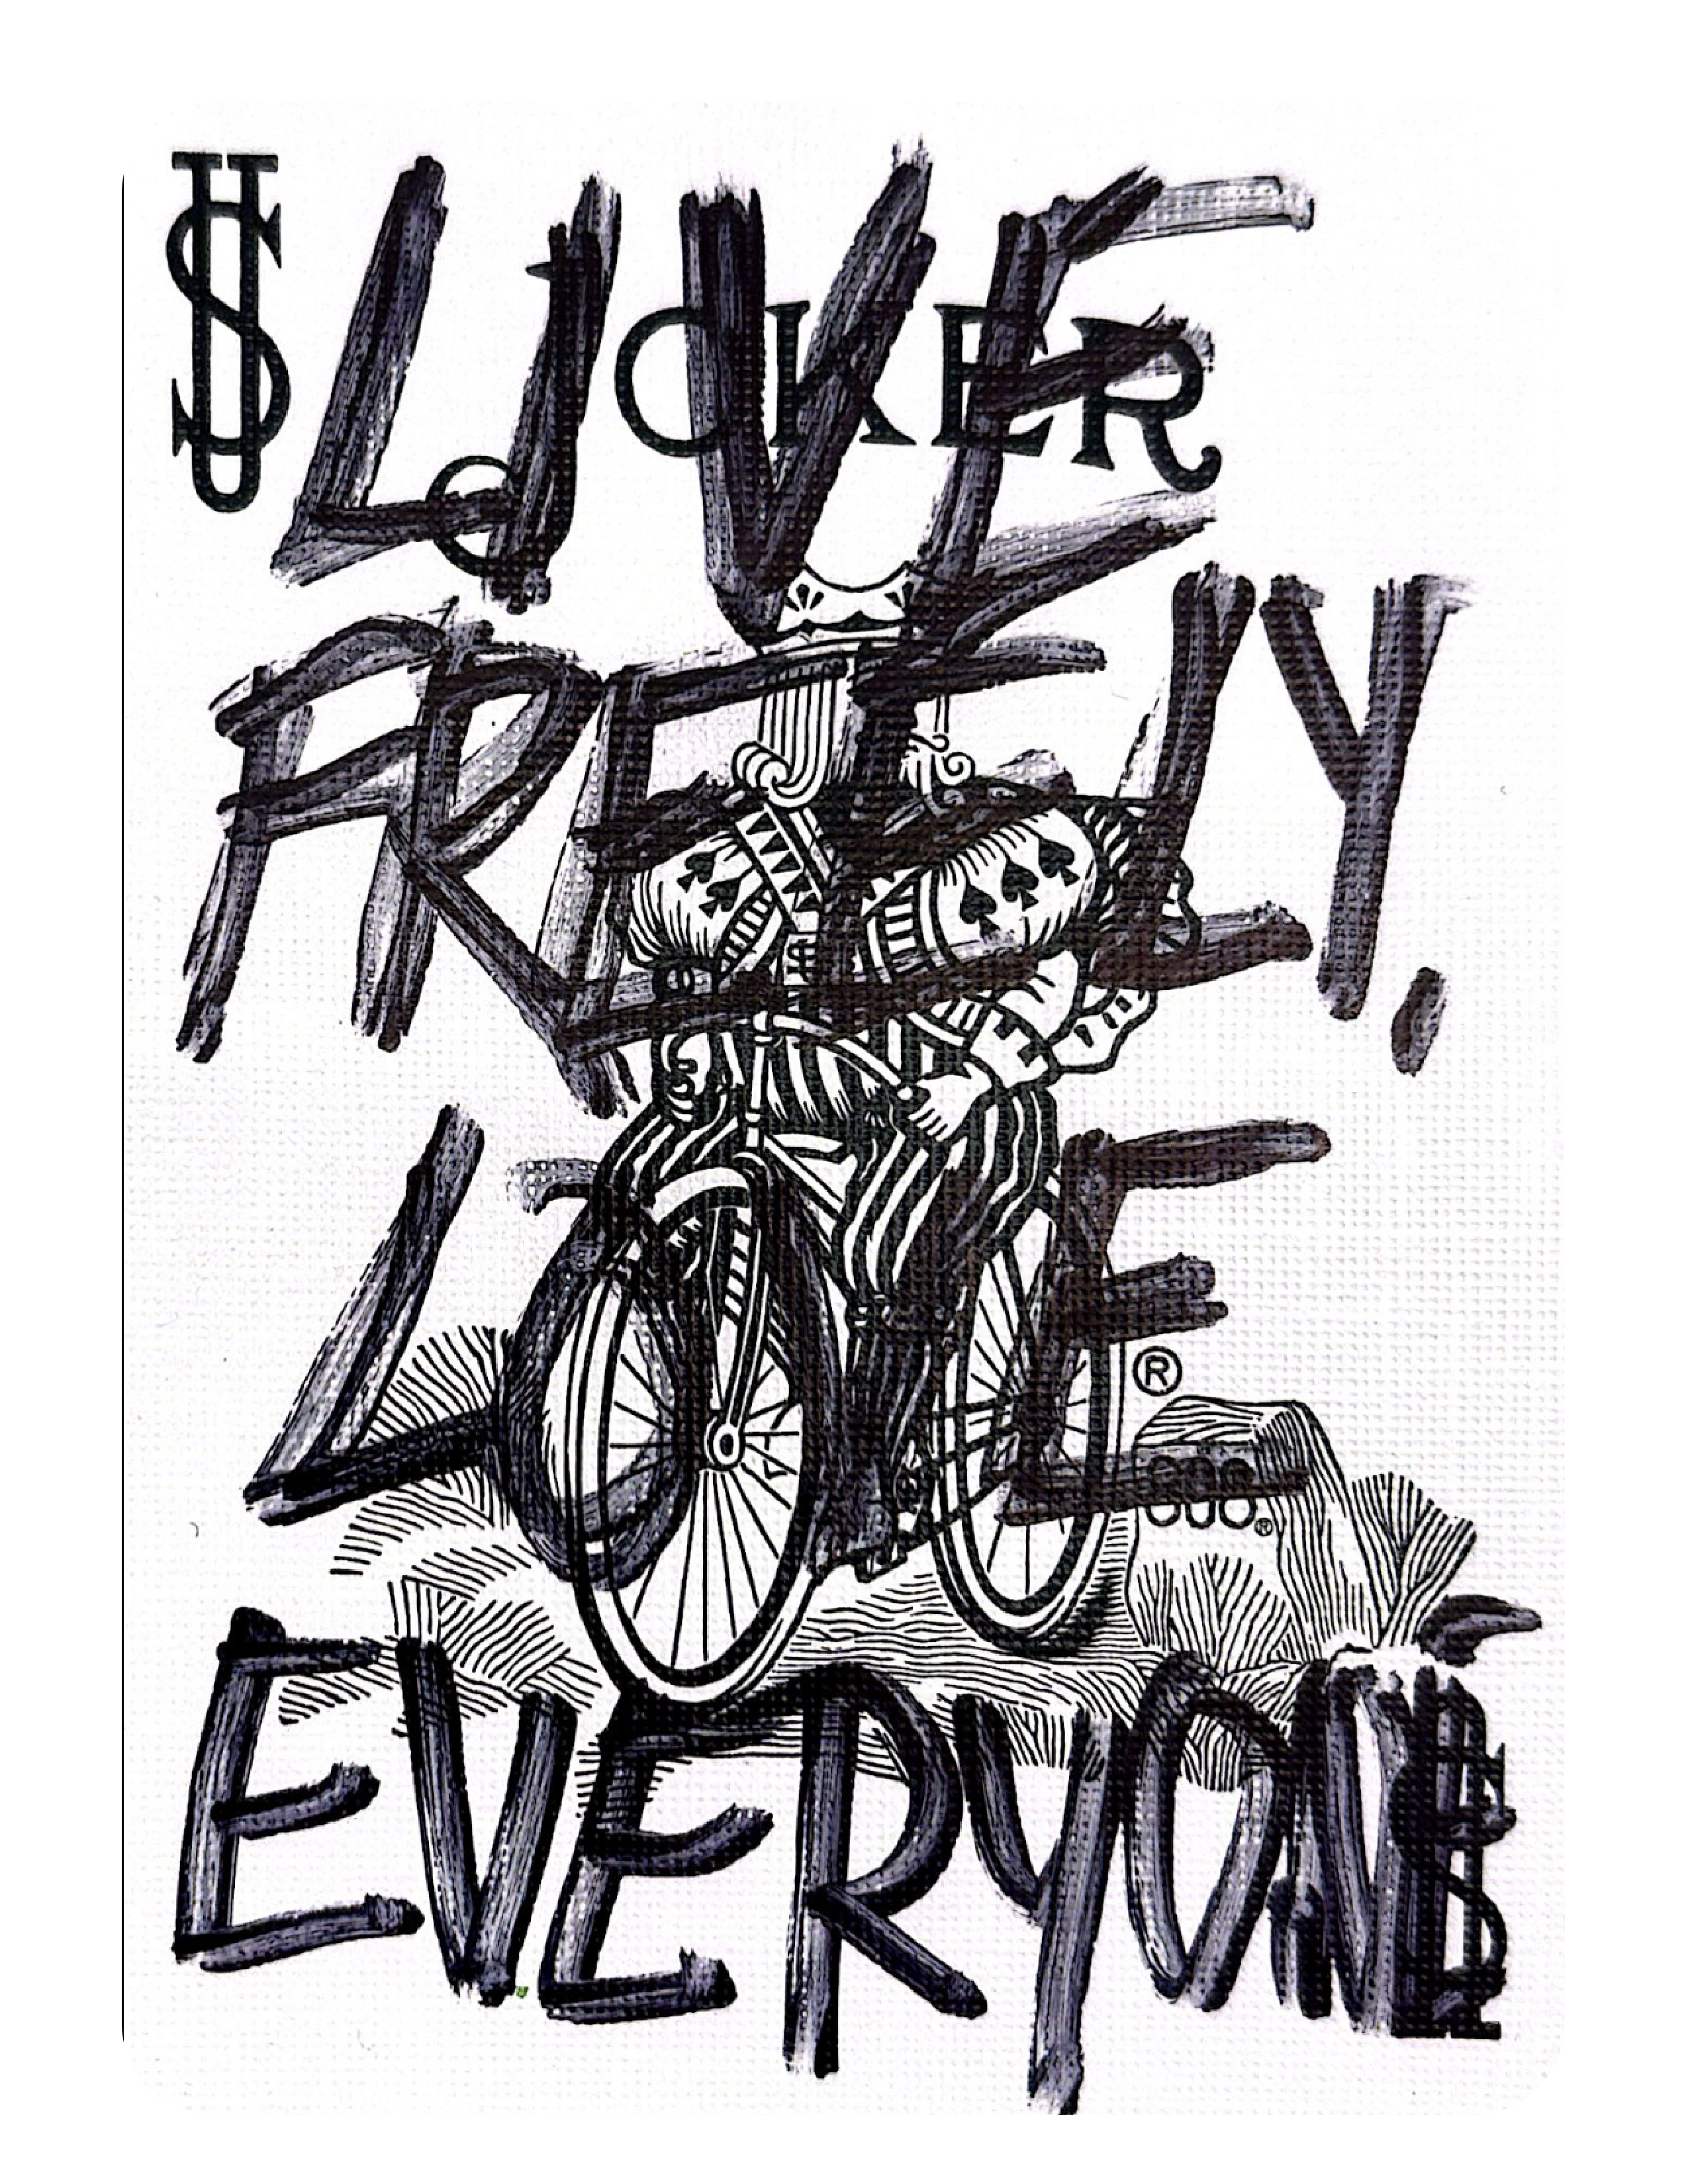 JOKER
LIVE
FREELY.
LOVE
EVERYONE
®
®